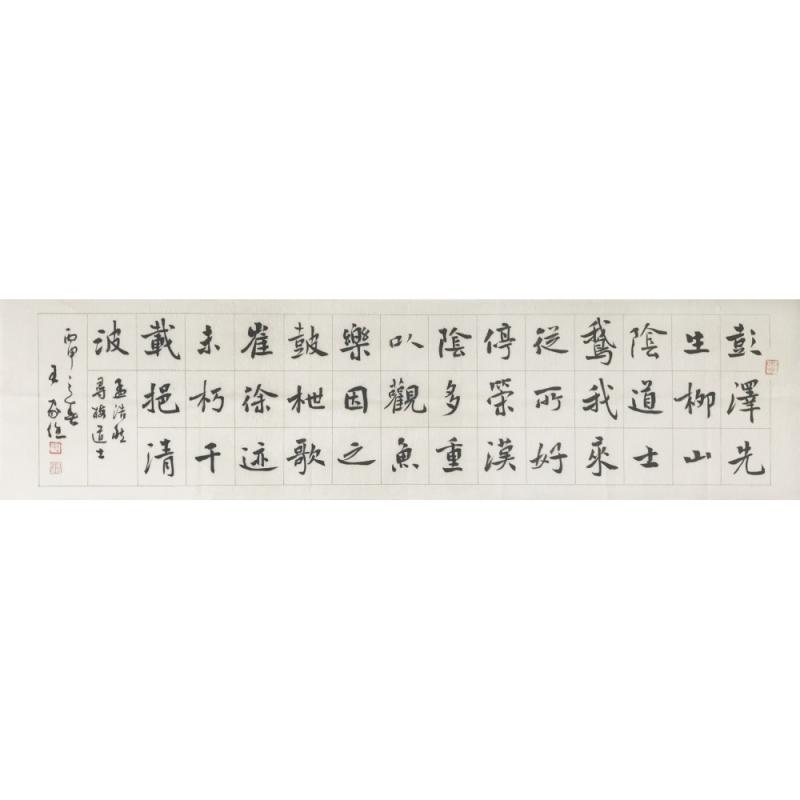 彭澤先
生柳山
陰道士
鵝我來
從所好
停榮漢
陰多重
以觀魚
樂因之
鼓枻歌
崔徐迹
未朽千
載挹清
波
孟浩然
尋梅道士
丙申之春
王